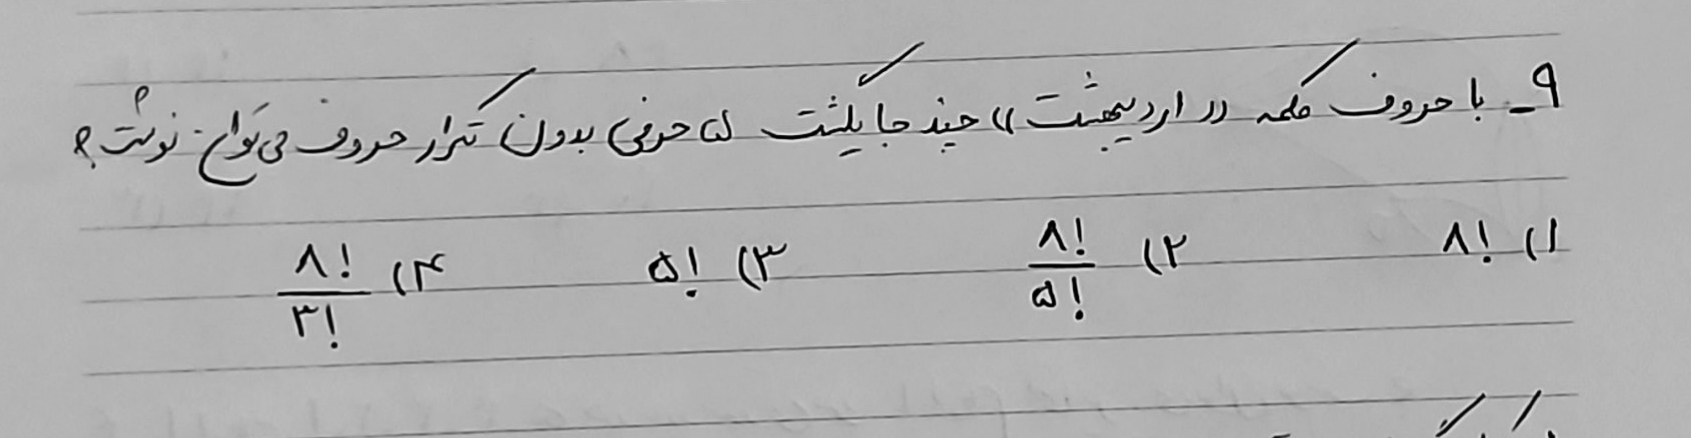 ۹_ با حروف کلمه «اردیبهشت» چند جایگشت ۵ حرفی بدون تکرار حروف می‌توان نوشت؟
۱) ۸! ۲) ۸!/۵! ۳) ۵! ۴) ۸!/۳!